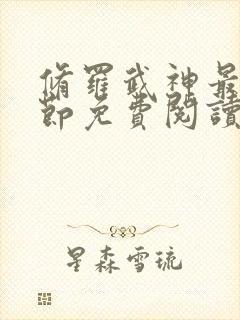 脩羅武神最
節免費閱讀
星森雪琉